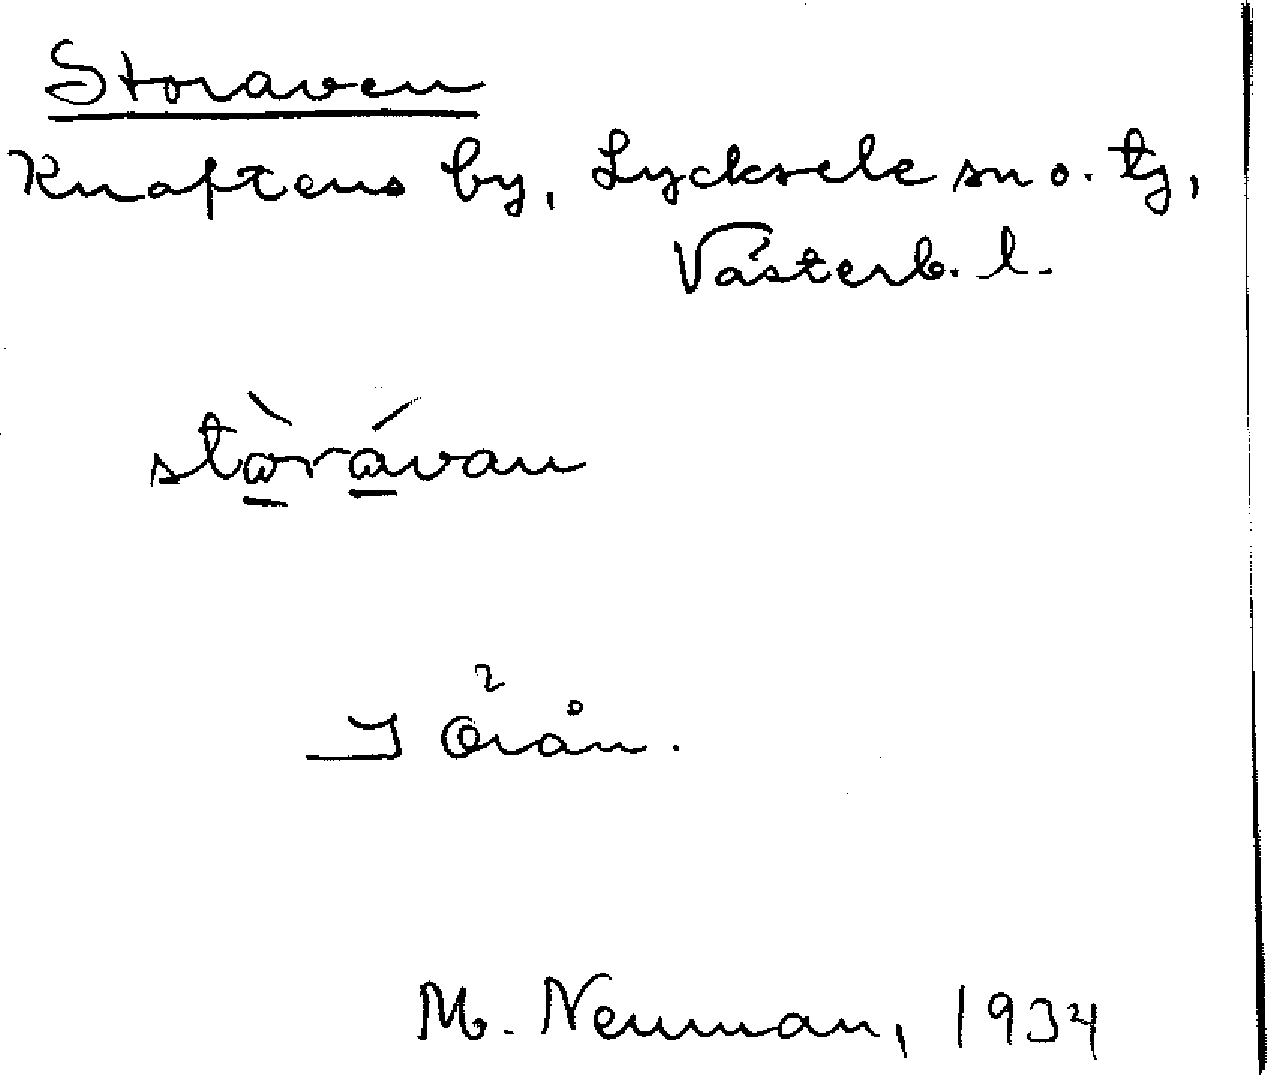 Storaven
Knaftens by, Lycksele sn o. tg,
Västerb. l.
stòrávan
I Örån.
M. Neuman, 1934